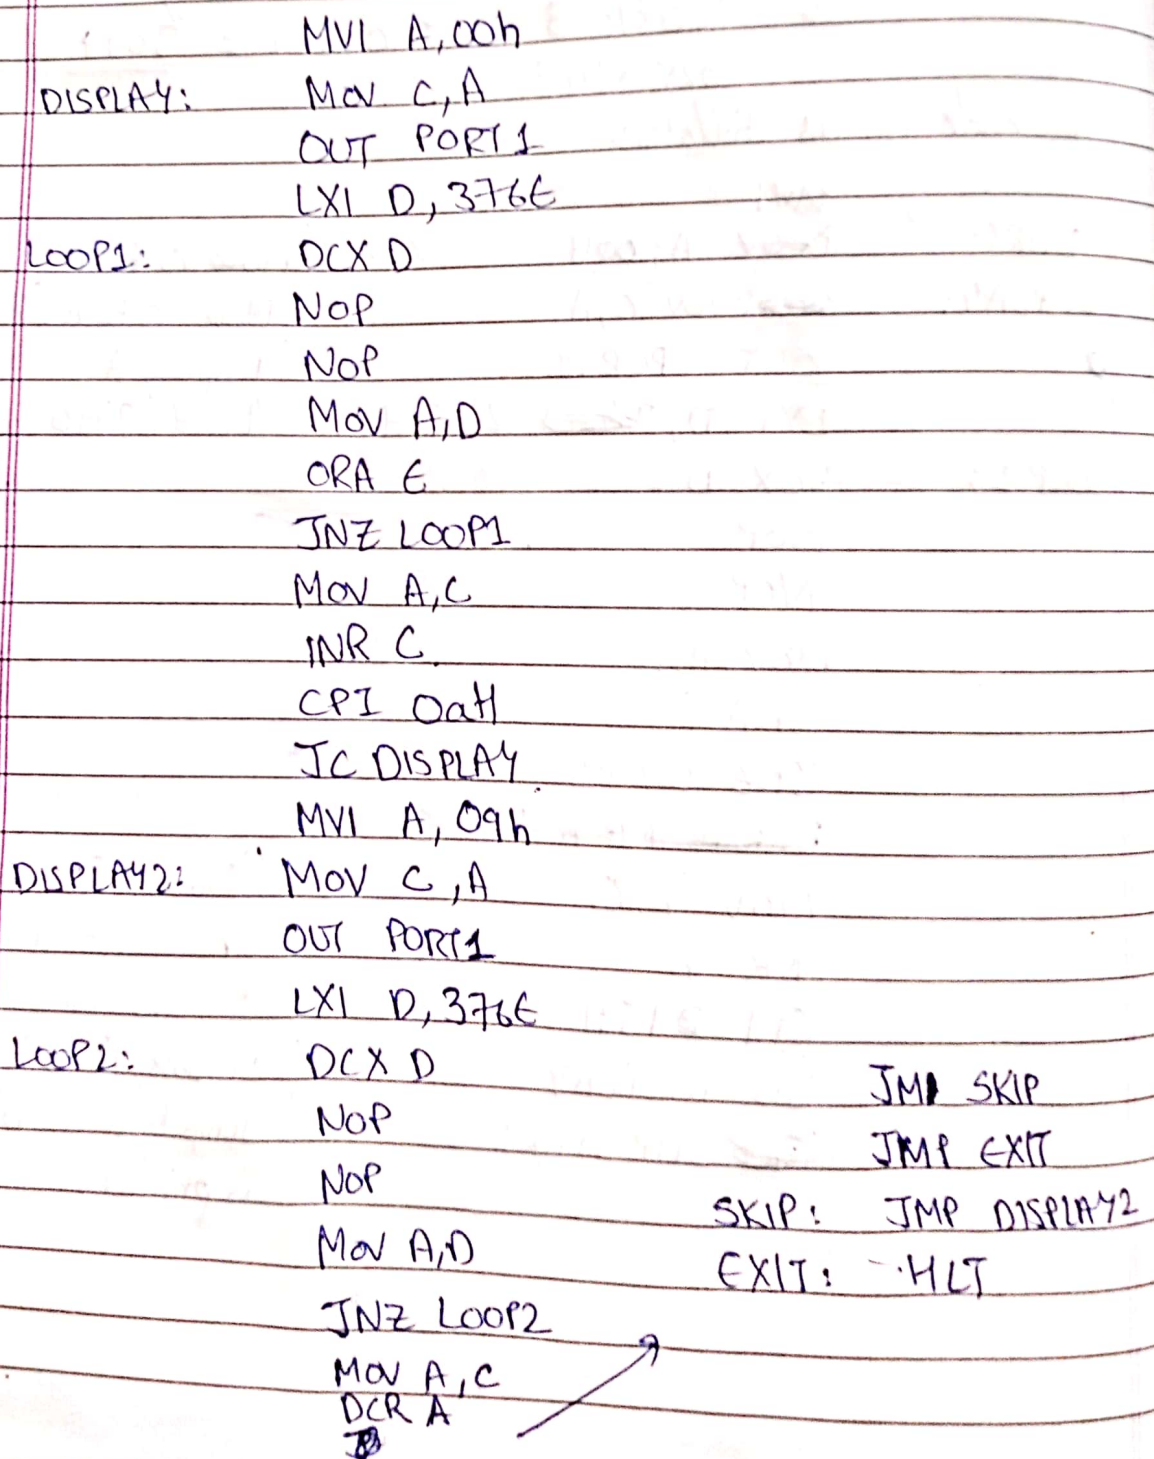 MVI A,00h
DISPLAY: MOV C,A
OUT PORT1
LXI D,376E
LOOP1: DCX D
NOP
NOP
MOV A,D
ORA E
JNZ LOOP1
MOV A,C
INR C
CPI 0aH
JC DISPLAY
MVI A,09h
DISPLAY2: MOV C,A
OUT PORT1
LXI D,376E
LOOP2: DCX D
NOP
NOP
MOV A,D
JNZ LOOP2
MOV A,C
DCR A
SKIP
JMP EXIT
SKIP: JMP DISPLAY2
EXIT: HLT